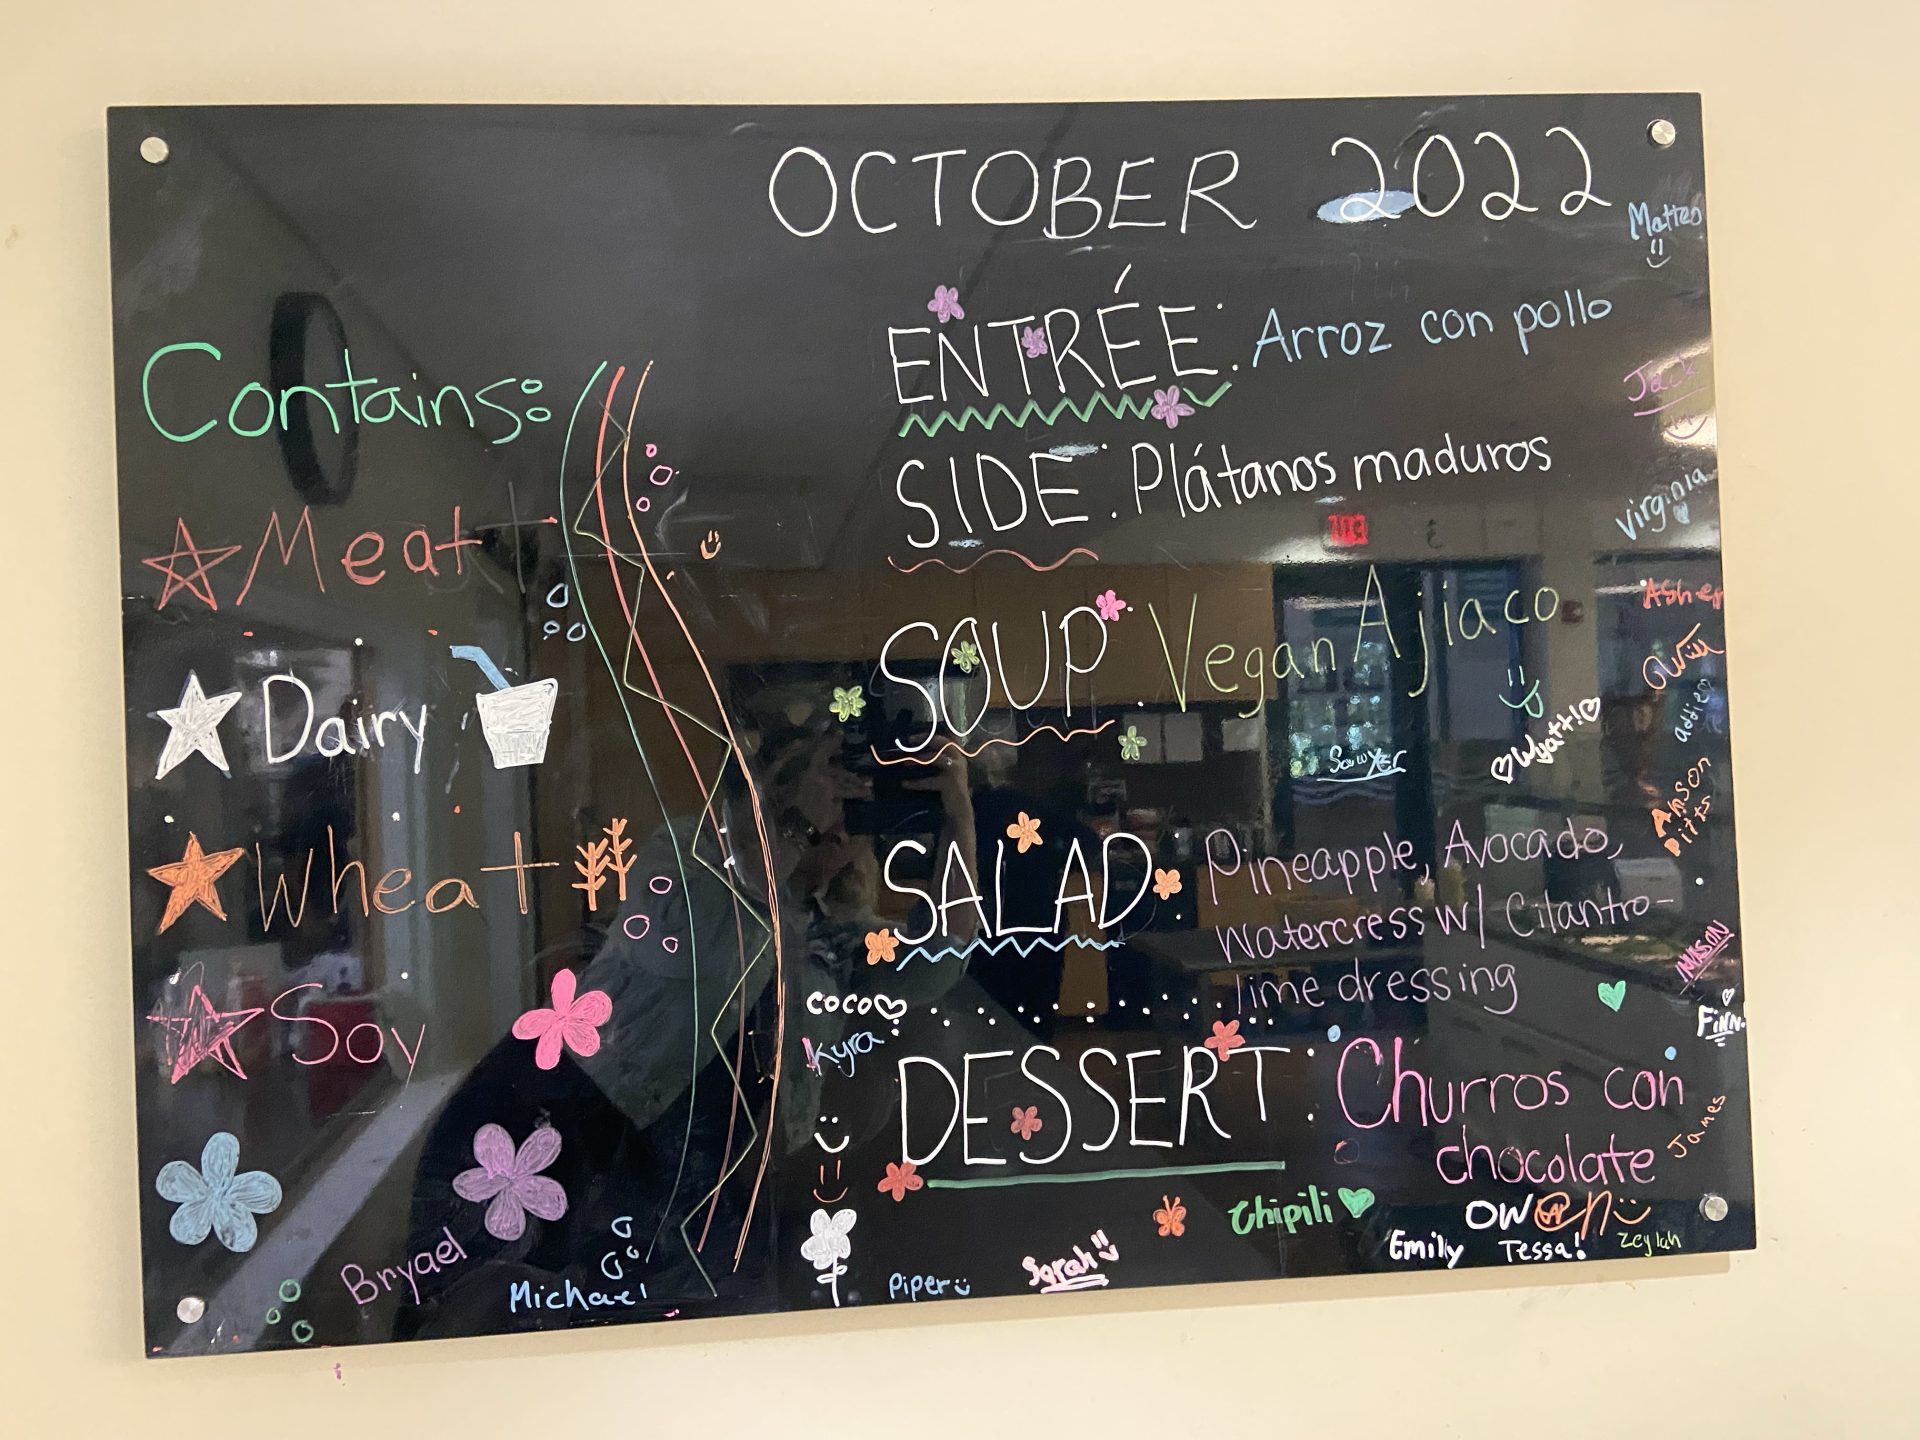 OCTOBER 2022
Contains:
Meat
Dairy
Wheat
Soy
ENTRÉE: Arroz con pollo
SIDE: Plátanos maduros
SOUP: Vegan Ajiaco
SALAD: Pineapple, Avocado,
Watercress w/ Cilantro-
lime dressing
DESSERT: Churros con
chocolate
Matteo
Jack
Virginia
Asher
Quill
addie
Wyatt!
Sawyer
Anson
Pitts
coco
Kyra
Finn.
James
Chipili
Owen
Emily
Tessa!
Zeylah
Bryael
Michael
Piper
Sarah